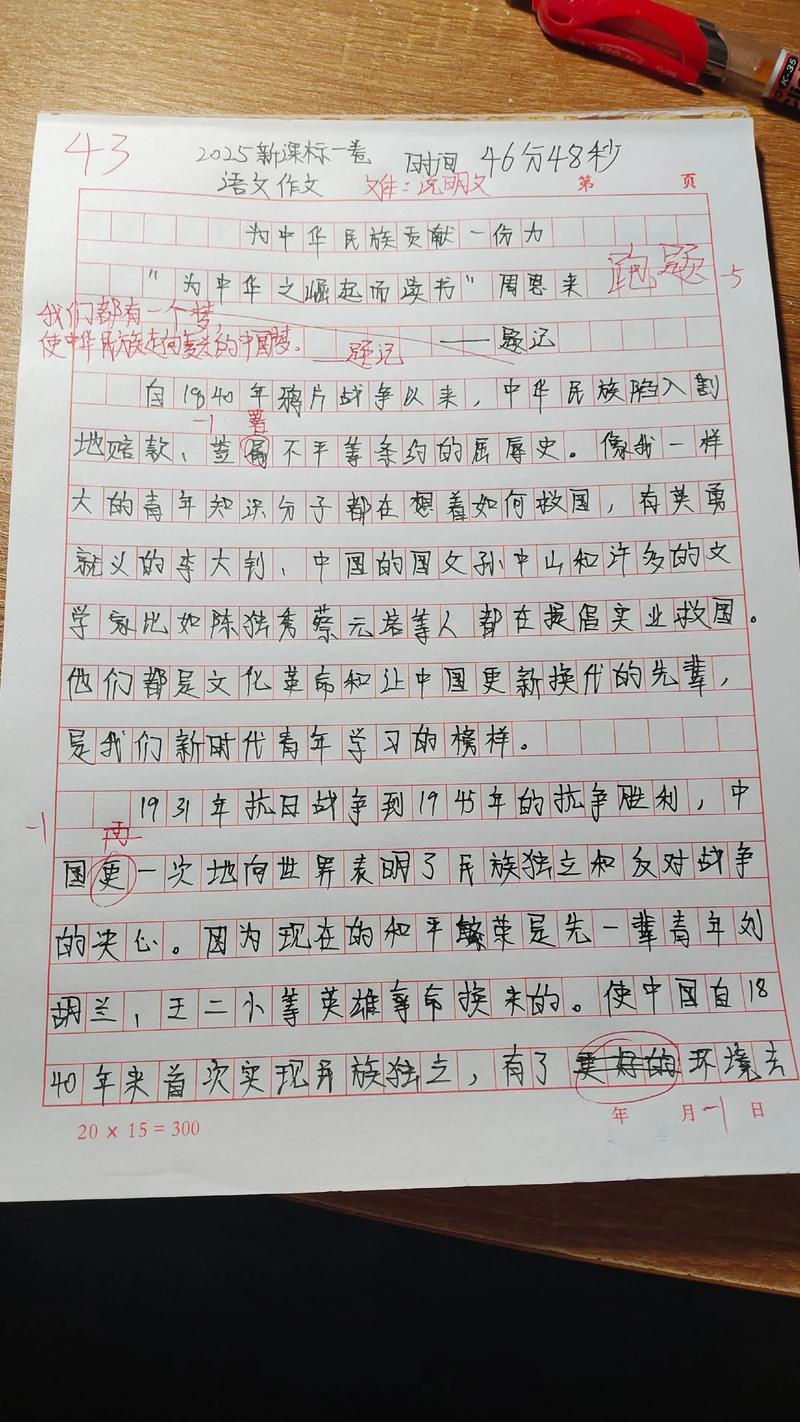 43
2025新课标一卷 时间 46分48秒
语文作文 文体:说明文 第 页
为中华民族贡献一份力
"为中华之崛起而读书"周恩来 跑题 -5
我们都有一个梦,
使中华民族走向复兴的中国梦。——题记
——题记
自1840年鸦片战争以来,中华民族陷入割
-1 署
地赔款、签属不平等条约的屈辱史。像我一样
大的青年知识分子都在想着如何救国,有英勇
就义的李大钊、中国的国父孙中山和许多的文
学家比如陈独秀蔡元培等人都在提倡实业救国。
他们都是文化革命和让中国更新换代的先辈,
是我们新时代青年学习的榜样。
1931年抗日战争到1945年的抗争胜利,中
-1 再
国更一次地向世界表明了民族独立和反对战争
的决心。因为现在的和平繁荣是先一辈青年刘
胡兰,王二小等英雄拿命换来的。使中国自18
40年来首次实现民族独立,有了更好的环境去
20×15=300 年 月 日
-1